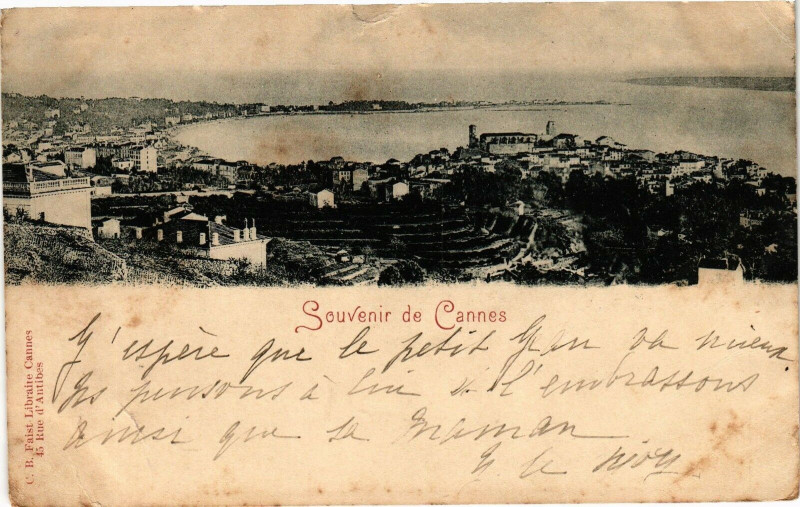 Souvenir de Cannes
J'espère que le petit Jean va mieux
Ns pensons à lui & l'embrassons
ainsi que sa Maman
C. B. Faist Libraite Cannes
45 Rue d'Antibes